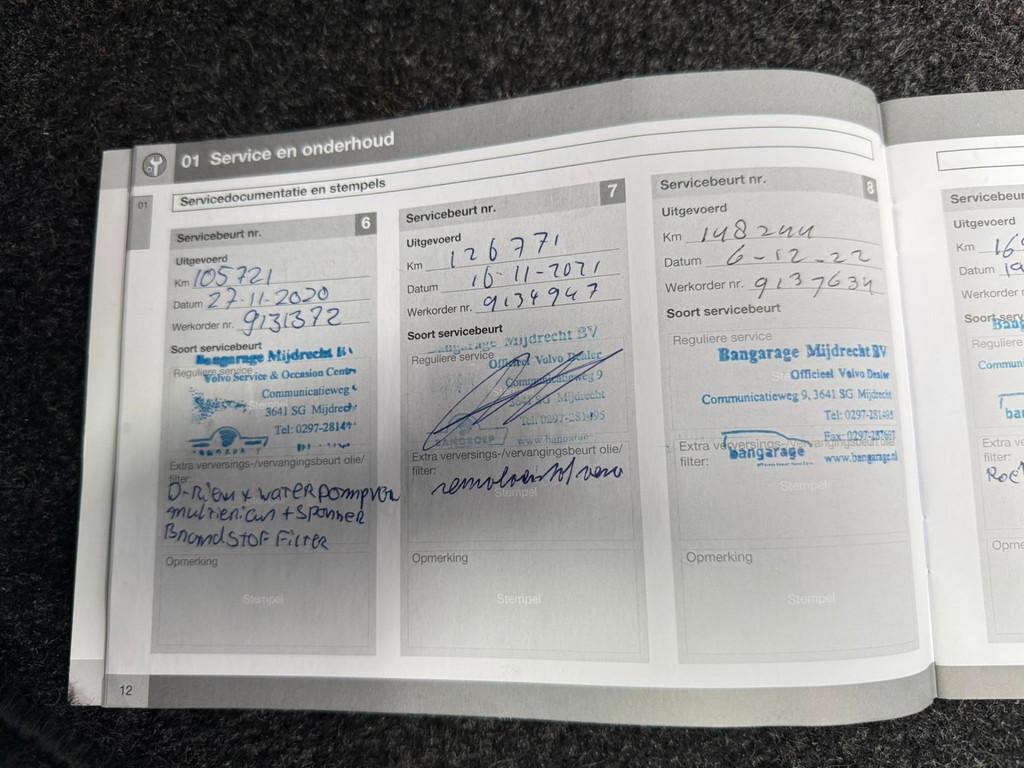 01 Service en onderhoud
01
Servicedocumentatie en stempels
Servicebeurt nr. 6
Uitgevoerd
Km 105721
Datum 27-11-2020
Werkorder nr. 9131372
Soort servicebeurt
Bangarage Mijdrecht
Reguliere service
Volvo Service & Occasion Centr
Communicatieweg
3641 SG Mijdrecht
Tel: 0297-2814
Extra verversings-/vervangingsbeurt olie/
filter:
D-Riem x waterpomp ver
multiriem + spanner
Brandstof Filter
Opmerking
Stempel
Servicebeurt nr. 7
Uitgevoerd
Km 126771
Datum 16-11-2021
Werkorder nr. 9134947
Soort servicebeurt
Bangarage Mijdrecht BV
Reguliere service
Officieel Volvo Dealer
Communicatieweg 9
3641 SG Mijdrecht
Tel: 0297-281495
www.bangarage
Extra verversings-/vervangingsbeurt olie/
filter:
remvloeistof verv
Stempel
Opmerking
Stempel
Servicebeurt nr. 8
Uitgevoerd
Km 148244
Datum 6-12-22
Werkorder nr. 9137634
Soort servicebeurt
Reguliere service
Bangarage Mijdrecht BV
Officieel Volvo Dealer
Communicatieweg 9, 3641 SG Mijdrecht
Tel: 0297-281495
Fax: 0297-287667
bangarage www.bangarage.nl
Extra verversings-/vervangingsbeurt olie/
filter:
Stempel
Opmerking
Stempel
Servicebeu
Uitgevoerd
Km 16
Datum 19
Werkorder
Soort serv
Bang
Reguliere
Commun
ban
Extra ver
filter:
Opme
12